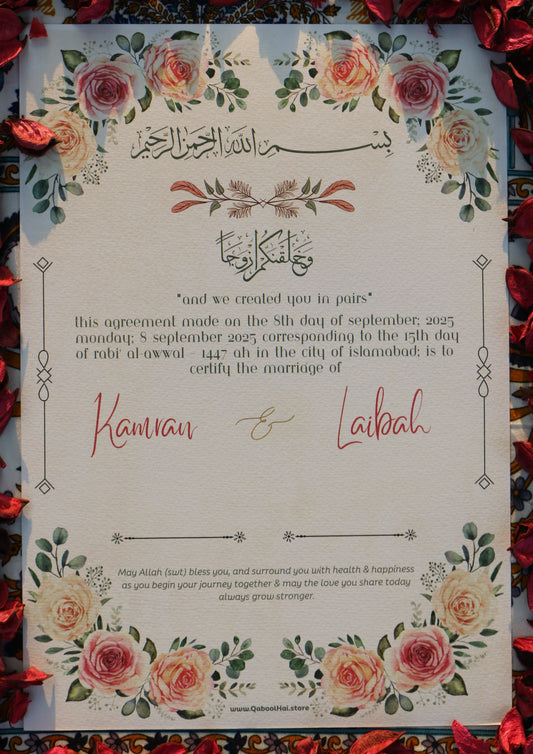 بسم الله الرحمن الرحيم
وَخَلَقْنَكُمْ أَزْوَجًا
"and we created you in pairs"
this agreement made on the 8th day of september; 2025
monday; 8 september 2025 corresponding to the 15th day
of rabi' al-awwal - 1447 ah in the city of islamabad; is to
certify the marriage of
Kamran & Laibah
May Allah (swt) bless you, and surround you with health & happiness
as you begin your journey together & may the love you share today
always grow stronger.
www.QaboolHai.store